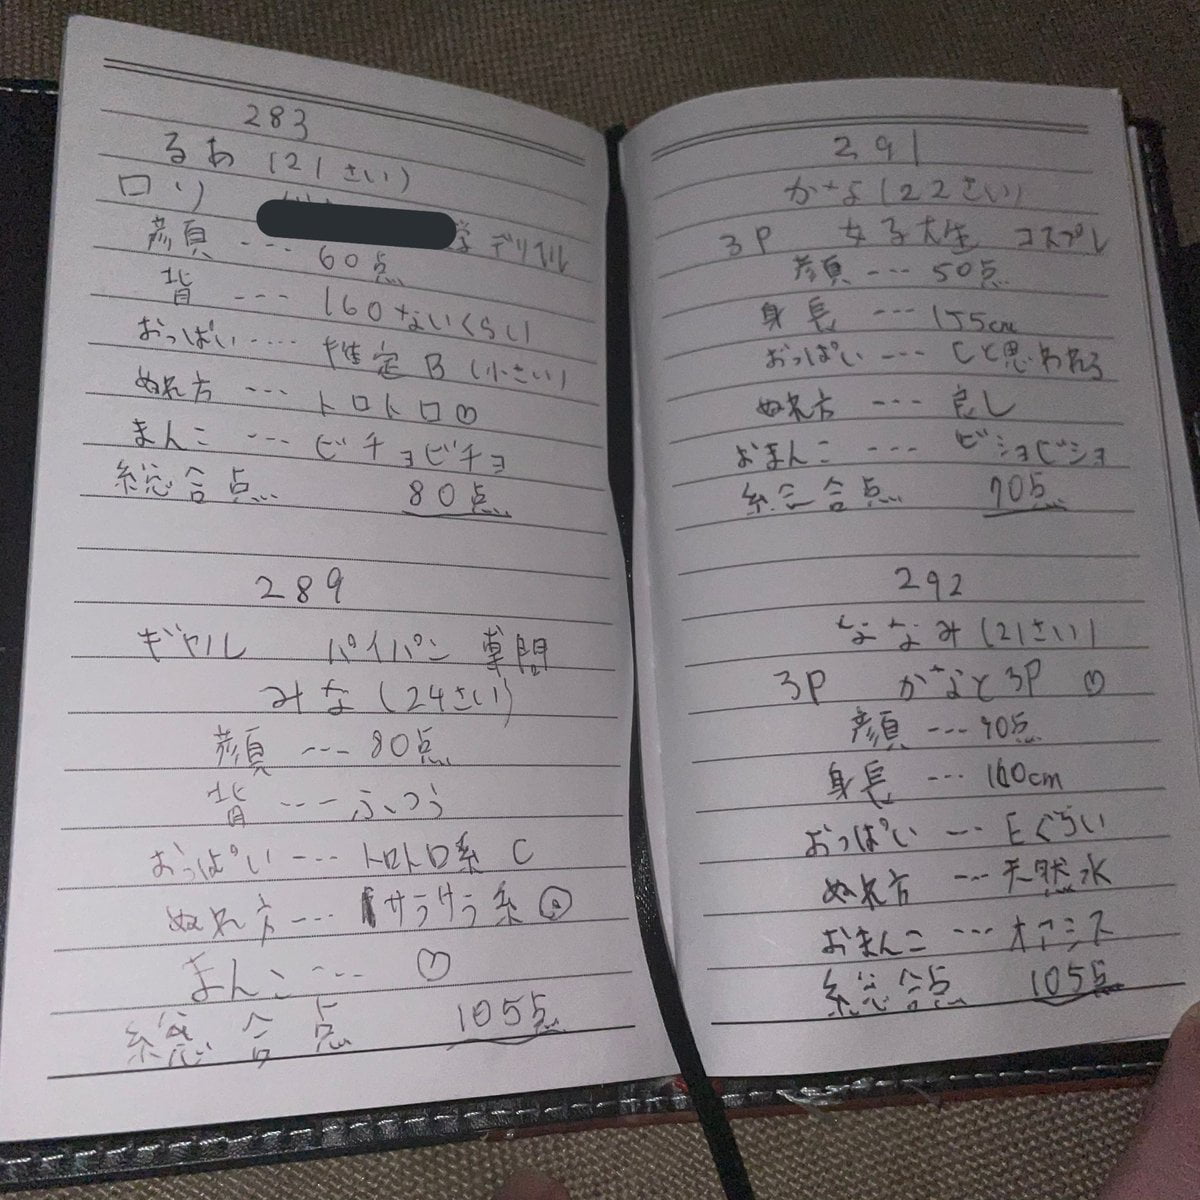 283
るあ(21さい)
ロリ 学デリヘル
顔 --- 60点
背 --- 160ないくらい
おっぱい ---- 推定B(小さい)
ぬれ方 --- トロトロ♡
まんこ --- ビチョビチョ
総合点 80点
289
ギャル パイパン 専門
みな(24さい)
顔 --- 80点
背 --- ふつう
おっぱい --- トロトロ系 C
ぬれ方 --- サラサラ系
まんこ --- ♡
総合点 105点
291
かな(22さい)
3P 女子大生 コスプレ
顔 --- 50点
身長 --- 155cm
おっぱい --- Cと思われる
ぬれ方 --- 良し
おまんこ --- ビショビショ
総合点 70点
292
ななみ(21さい)
3P かなと3P ♡
顔 --- 90点
身長 --- 160cm
おっぱい --- Eぐらい
ぬれ方 --- 天然水
おまんこ --- オアシス
総合点 105点